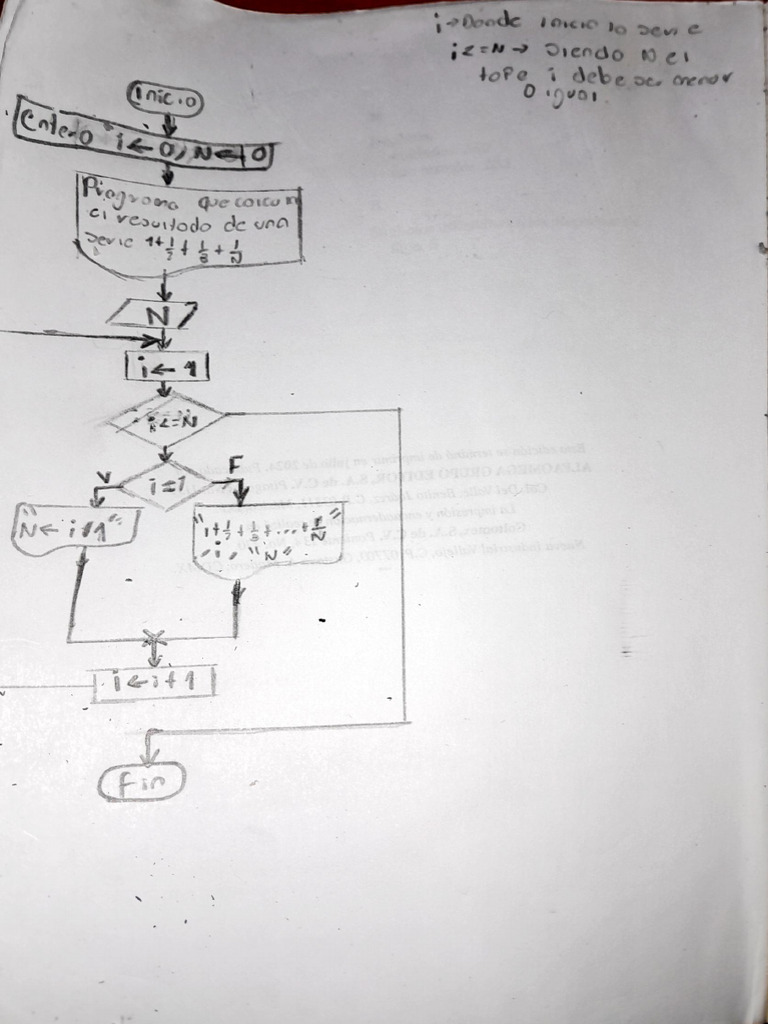 i → Donde inicio la serie
i <= N → Siendo N el
tope i debe ser menor
o igual.
Inicio
Entero i ← 0, N ← 0
Programa que calcula
el resultado de una
serie 1 + 1/2 + 1/3 + 1/N
N
i ← 1
i <= N
i = 1
V
F
"N ← i + 1"
"1 + 1/2 + 1/3 + ... + 1/N"
, i, "N"
i ← i + 1
Fin